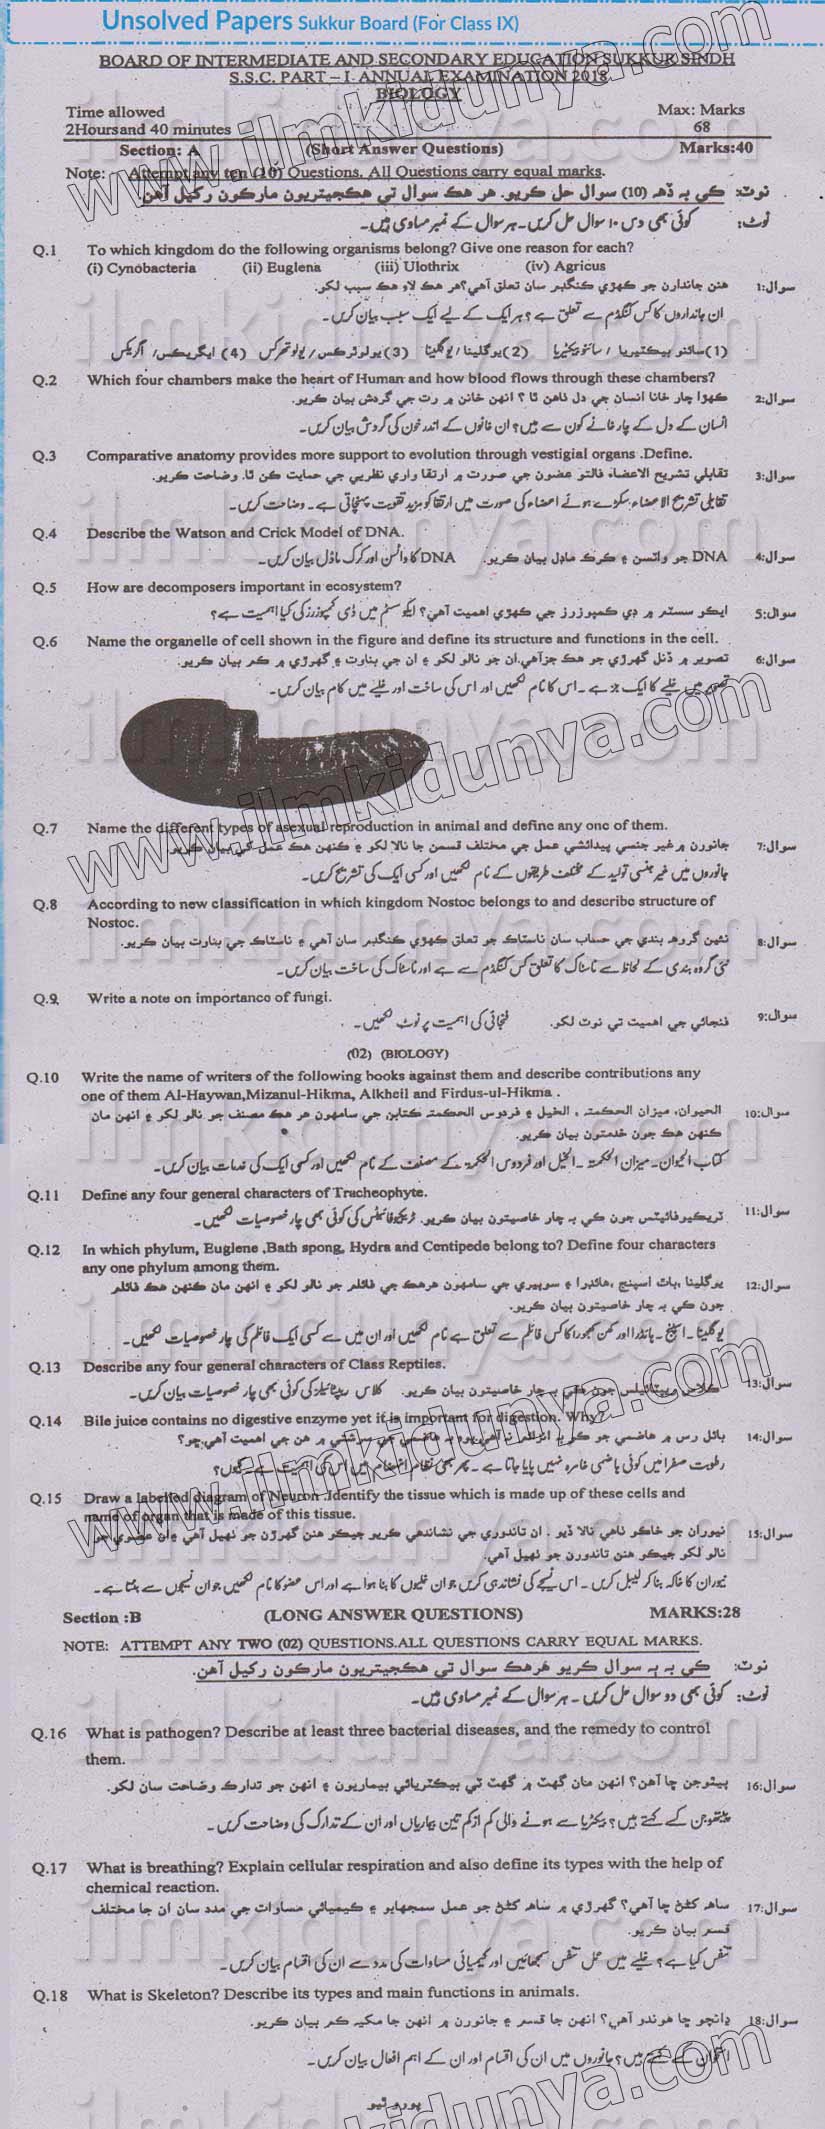 Unsolved Papers Sukkur Board (For Class IX)
BOARD OF INTERMEDIATE AND SECONDARY EDUCATION SUKKUR SINDH
S.S.C. PART – I. ANNUAL EXAMINATION 2018
BIOLOGY
Time allowed Max: Marks
2Hoursand 40 minutes 68
Section: A (Short Answer Questions) Marks:40
Note: Attempt any ten (10) Questions. All Questions carry equal marks.
نوٽ: ڪي به ڏهه (10) سوال حل ڪريو. هر هڪ سوال تي هڪجيتريون مارڪون رکيل آهن.
نوٹ: کوئی بھی دس ۱۰ سوال حل کریں۔ ہر سوال کے نمبر مساوی ہیں۔
Q.1 To which kingdom do the following organisms belong? Give one reason for each?
(i) Cynobacteria (ii) Euglena (iii) Ulothrix (iv) Agricus
سوال:1 هنن جاندارن جو ڪهڙي ڪنگڊم سان تعلق آهي؟ هر هڪ لاءِ هڪ سبب لکو.
ان جانداروں کا کس کنگڈم سے تعلق ہے؟ ہر ایک کے لیے ایک سبب بیان کریں۔
(1) سائنو بيڪٽيريا / سائنو بیکٹیریا (2) یوگلینا/يوگلينا (3) يولوٿرڪس/یولوتھرکس (4) ايگريڪس/ اگریکس
Q.2 Which four chambers make the heart of Human and how blood flows through these chambers?
سوال:2 ڪهڙا چار خانا انسان جي دل ٺاهن ٿا؟ انهن خانن ۾ رت جي گردش بيان ڪريو.
انسان کے دل کے چار خانے کون سے ہیں؟ ان خانوں کے اندر خون کی گردش بیان کریں۔
Q.3 Comparative anatomy provides more support to evolution through vestigial organs .Define.
سوال:3 تقابلي تشريح الاعضاء فالتو عضون جي صورت ۾ ارتقا واري نظريي جي حمايت ڪن ٿا. وضاحت ڪريو.
تقابلی تشریح الاعضاء سکڑے ہوئے اعضاء کی صورت میں ارتقا کو مزید تقویت پہنچاتی ہے۔ وضاحت کریں۔
Q.4 Describe the Watson and Crick Model of DNA.
سوال:4 DNA جو واٽسن ۽ ڪرڪ ماڊل بيان ڪريو. DNA کا واٹسن اور کرک ماڈل بیان کریں۔
Q.5 How are decomposers important in ecosystem?
سوال:5 ايڪو سسٽم ۾ ڊي ڪمپوزرز جي ڪهڙي اهميت آهي؟ ایکو سسٹم میں ڈی کمپوزرز کی کیا اہمیت ہے؟
Q.6 Name the organelle of cell shown in the figure and define its structure and functions in the cell.
سوال:6 تصوير ۾ ڏنل گهرڙي جو هڪ جز آهي. ان جو نالو لکو ۽ ان جي بناوت ۽ گهرڙي ۾ ڪم بيان ڪريو.
تصویر میں خلیے کا ایک جز ہے۔ اس کا نام لکھیں اور اس کی ساخت اور خلیے میں کام بیان کریں۔
Q.7 Name the different types of asexual reproduction in animal and define any one of them.
سوال:7 جانورن ۾ غير جنسي پيدائشي عمل جي مختلف قسمن جا نالا لکو ۽ ڪنهن هڪ عمل کي بيان ڪريو.
جانوروں میں غیر جنسی تولید کے مختلف طریقوں کے نام لکھیں اور کسی ایک کی تشریح کریں۔
Q.8 According to new classification in which kingdom Nostoc belongs to and describe structure of
Nostoc.
سوال:8 نئين گروهه بندي جي حساب سان ناسٽاڪ جو تعلق ڪهڙي ڪنگڊم سان آهي ۽ ناسٽاڪ جي بناوت بيان ڪريو.
نئی گروہ بندی کے لحاظ سے ناسٹاک کا تعلق کس کنگڈم سے ہے اور ناسٹاک کی ساخت بیان کریں۔
Q.9 Write a note on importance of fungi.
سوال:9 فنجائي جي اهميت تي نوٽ لکو. فنجائی کی اہمیت پر نوٹ لکھیں۔
(02) (BIOLOGY)
Q.10 Write the name of writers of the following books against them and describe contributions any
one of them Al-Haywan,Mizanul-Hikma, Alkheil and Firdus-ul-Hikma .
سوال:10 الحيوان، ميزان الحڪمته، الخيل ۽ فردوس الحڪمته ڪتابن جي سامهون هر هڪ مصنف جو نالو لکو ۽ انهن مان
ڪنهن هڪ جون خدمتون بيان ڪريو.
کتاب الحیوان۔ میزان الحکمۃ۔ الخیل اور فردوس الحکمۃ کے مصنف کے نام لکھیں اور کسی ایک کی خدمات بیان کریں۔
Q.11 Define any four general characters of Tracheophyte.
سوال:11 ٽريڪيوفائيٽس جون ڪي به چار خاصيتون بيان ڪريو. ٹریکیوفائیٹس کی کوئی بھی چار خصوصیات لکھیں۔
Q.12 In which phylum, Euglene ,Bath spong, Hydra and Centipede belong to? Define four characters
any one phylum among them.
سوال:12 يوگلينا ،باٿ اسپنج ،هائڊرا ۽ سوپيري جي سامهون هر هڪ جي فائلم جو نالو لکو ۽ انهن مان ڪنهن هڪ فائلم
جون ڪي به چار خاصيتون بيان ڪريو.
یوگلینا۔ اسپنج۔ ہائڈرا اور کن کھجورا کا کس فائلم سے تعلق ہے نام لکھیں اور ان میں سے کسی ایک فائلم کی چار خصوصیات لکھیں۔
Q.13 Describe any four general characters of Class Reptiles.
سوال:13 ڪلاس ريپٽائيلس جون ڪي به چار خاصيتون بيان ڪريو. کلاس ریپٹائیلز کی کوئی بھی چار خصوصیات بیان کریں۔
Q.14 Bile juice contains no digestive enzyme yet if is important for digestion. Why?
سوال:14 بائل رس ۾ هاضمي جو ڪو به انزائم نه آهي پوءِ به هاضمي جي سرشتي ۾ هن جي اهميت آهي.ڇو؟
رطوبت صفرا میں کوئی ہاضمی خامرہ نہیں پایا جاتا ہے۔ پھر بھی نظام انہضام میں اس کی اہمیت ہے۔ کیوں؟
Q.15 Draw a labelled diagram of Neuron .Identify the tissue which is made up of these cells and
name of organ that is made of this tissue.
سوال:15 نيوران جو خاڪو ٺاهي نالا ڏيو . ان تاندوري جي نشاندهي ڪريو جيڪو هنن گهرڙن جو ٺهيل آهي ۽ ان عضوي جو
نالو لکو جيڪو هنن تاندورن جو ٺهيل آهي.
نیوران کا خاکہ بنا کر لیبل کریں۔ اس نسیج کی نشاندہی کریں جو ان خلیوں کا بنا ہوا ہے اور اس عضو کا نام لکھیں جو ان نسیجوں سے بنتا ہے۔
Section :B (LONG ANSWER QUESTIONS) MARKS:28
NOTE: ATTEMPT ANY TWO (02) QUESTIONS.ALL QUESTIONS CARRY EQUAL MARKS.
نوٽ: ڪي به ٻه سوال ڪريو هر هڪ سوال تي هڪجيتريون مارڪون رکيل آهن.
نوٹ: کوئی بھی دو سوال حل کریں۔ ہر سوال کے نمبر مساوی ہیں۔
Q.16 What is pathogen? Describe at least three bacterial diseases, and the remedy to control
them.
سوال:16 پيٿوجن ڇا آهن؟ انهن مان گهٽ ۾ گهٽ ٽي بيڪٽريائي بيماريون ۽ انهن جو تدارڪ وضاحت سان لکو.
پیتھوجن کسے کہتے ہیں؟ بیکٹریا سے ہونے والی کم از کم تین بیماریاں اور ان کے تدارک کی وضاحت کریں۔
Q.17 What is breathing? Explain cellular respiration and also define its types with the help of
chemical reaction.
سوال:17 ساهه کڻڻ ڇا آهي؟ گهرڙي ۾ ساهه کڻڻ جو عمل سمجهايو ۽ ڪيميائي مساوات جي مدد سان ان جا مختلف
قسم بيان ڪريو.
تنفس کیا ہے؟ خلیے میں عمل تنفس سمجھائیں اور کیمیائی مساوات کی مدد سے ان کی اقسام بیان کریں۔
Q.18 What is Skeleton? Describe its types and main functions in animals.
سوال:18 ڍانچو ڇا هوندو آهي؟ انهن جا قسم ۽ جانورن ۾ انهن جا مکيه ڪم بيان ڪريو.
استخوان کسے کہتے ہیں؟ جانوروں میں ان کی اقسام اور ان کے اہم افعال بیان کریں۔
پورو ٿيو
www.ilmkidunya.com